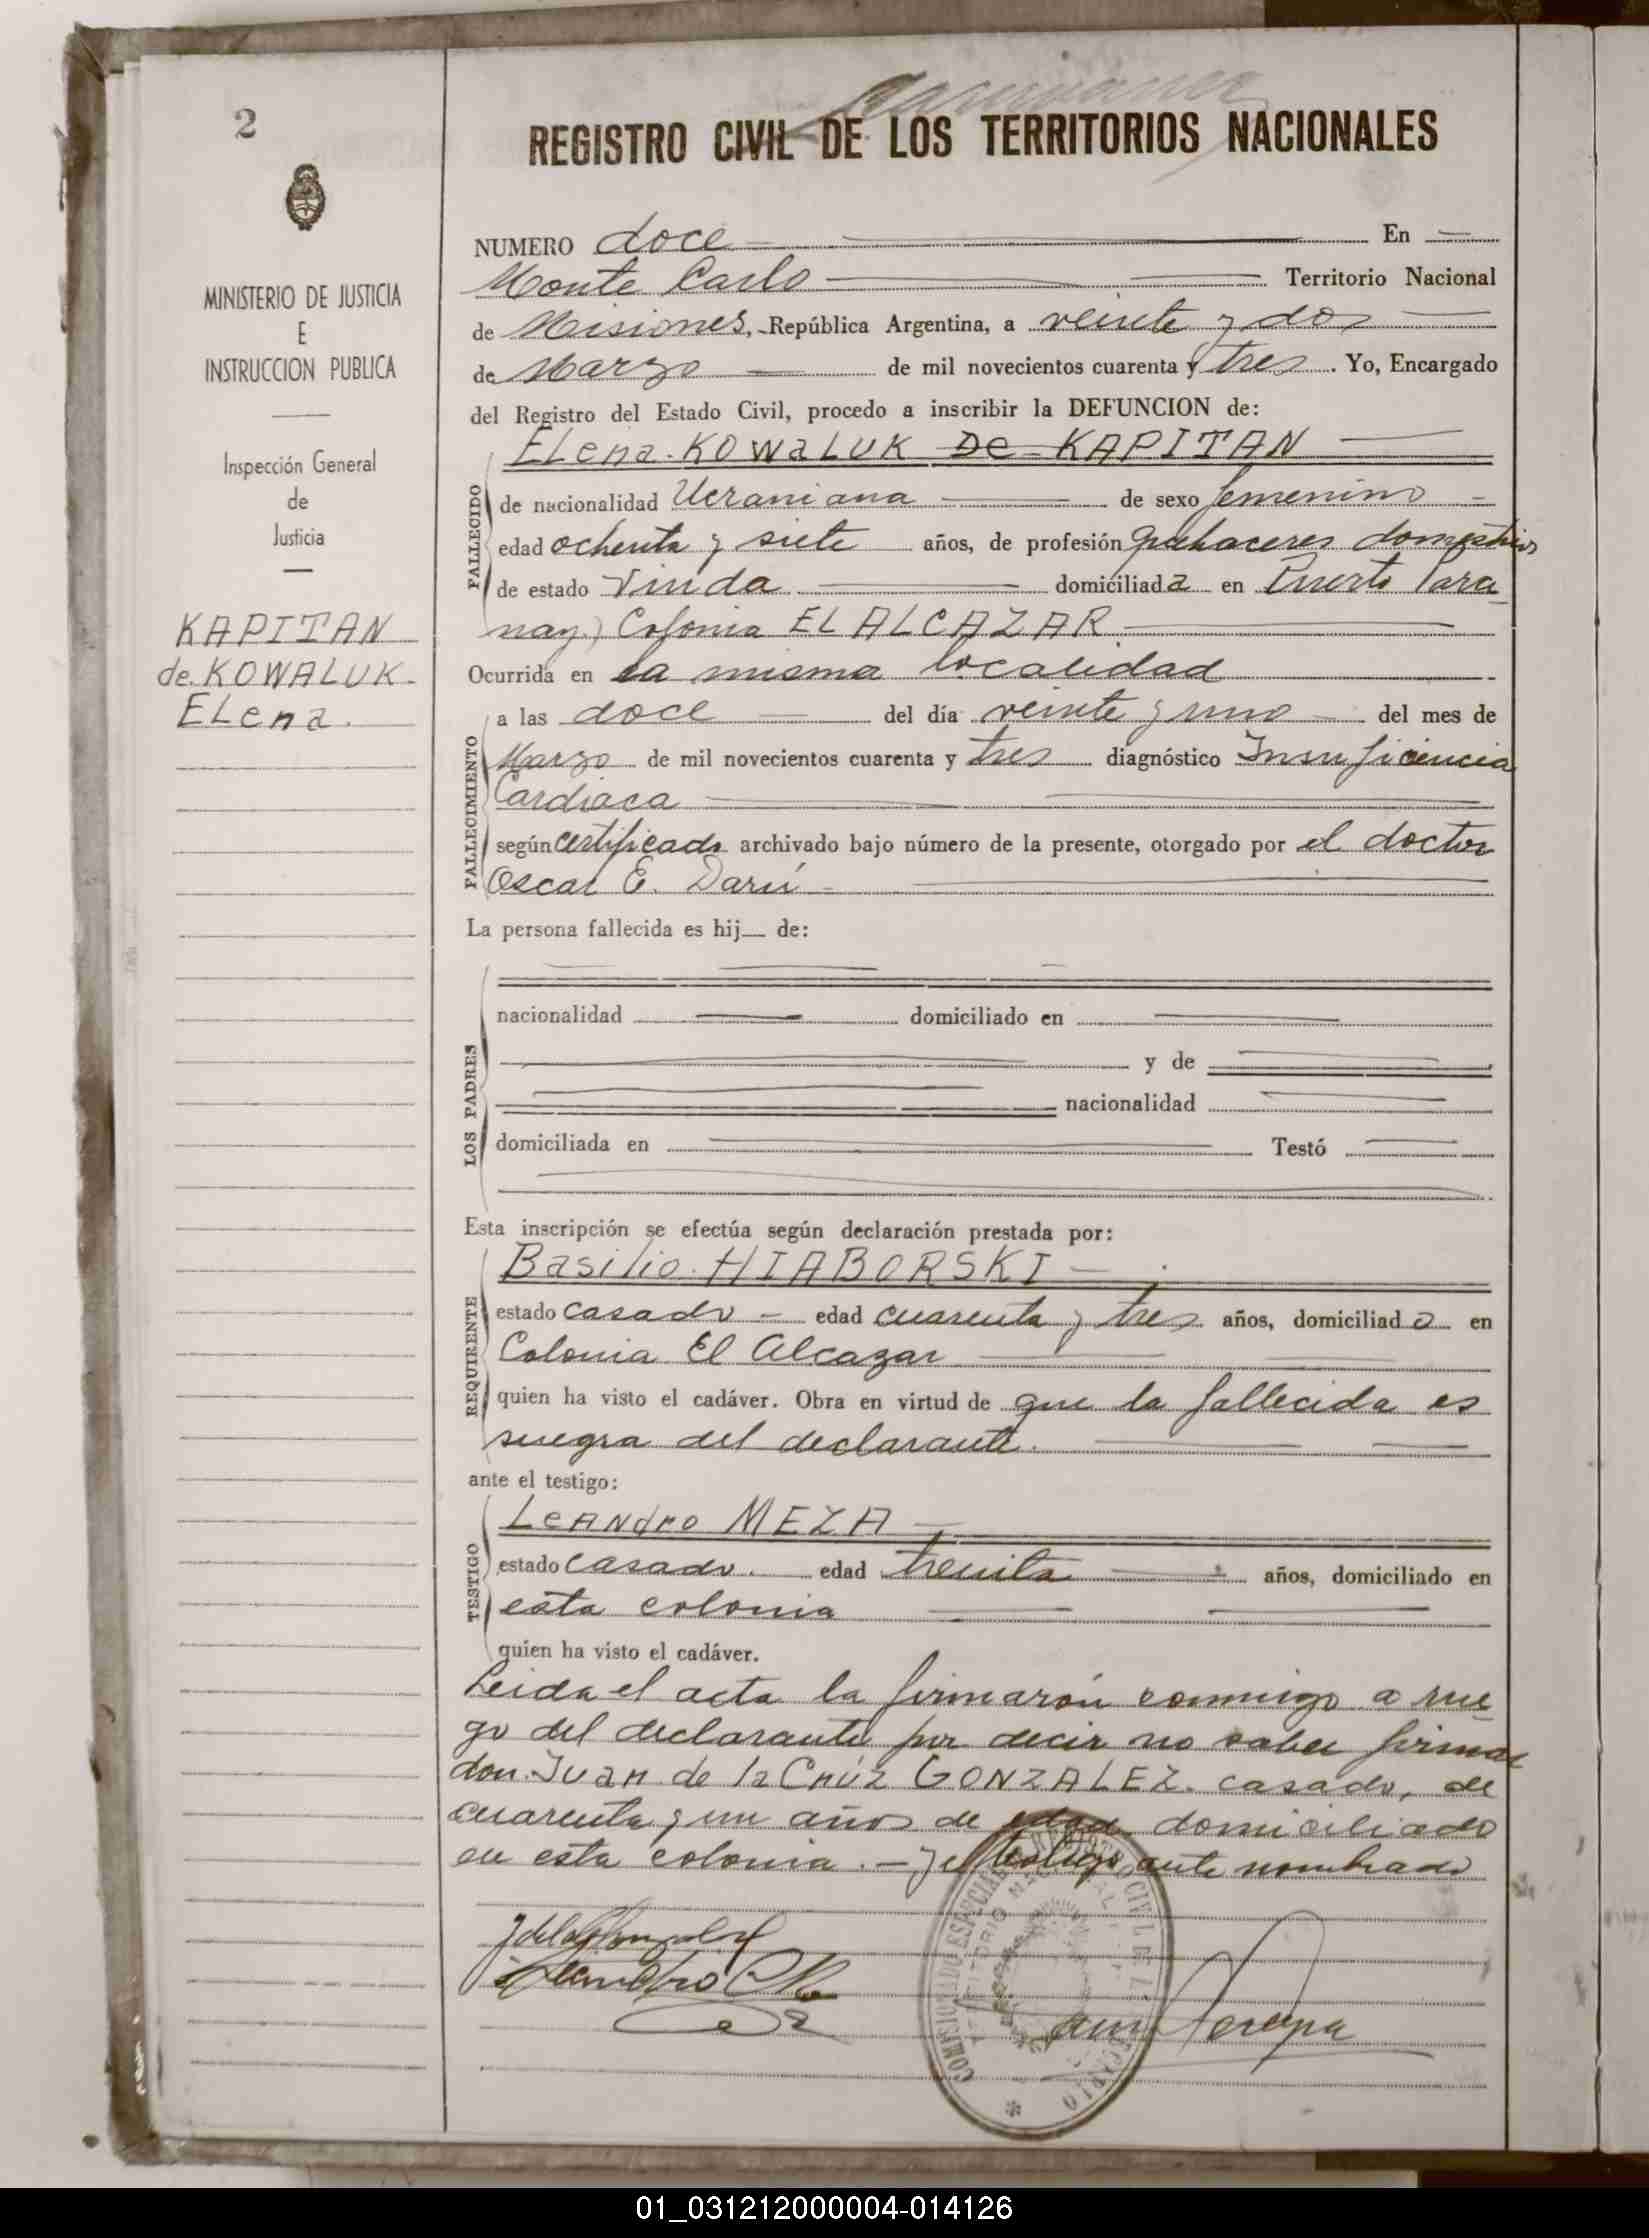 2
MINISTERIO DE JUSTICIA
E
INSTRUCCION PUBLICA
Inspección General
de
Justicia
KAPITAN
de KOWALUK
ELena.
REGISTRO CIVIL DE LOS TERRITORIOS NACIONALES
NUMERO doce En
Monte Carlo Territorio Nacional
de Misiones, República Argentina, a veinte y dos
de Marzo de mil novecientos cuarenta y tres. Yo, Encargado
del Registro del Estado Civil, procedo a inscribir la DEFUNCION de:
ELena KOWaLUK De KAPITAN
FALLECIDO
de nacionalidad Ucraniana de sexo femenino
edad ochenta y siete años, de profesión quehaceres domésticos
de estado Viuda domiciliada en Puerto Para
nay.) Colonia EL ALCAZAR
Ocurrida en la misma localidad
FALLECIMIENTO
a las doce del día veinte y uno del mes de
Marzo de mil novecientos cuarenta y tres diagnóstico Insuficiencia
Cardiaca
según certificado archivado bajo número de la presente, otorgado por el doctor
Oscar E. Darú
La persona fallecida es hij de:
LOS PADRES
nacionalidad domiciliado en
y de
nacionalidad
domiciliada en Testó
Esta inscripción se efectúa según declaración prestada por:
Basilio HIABORSKI
REQUIRENTE
estado casado edad cuarenta y tres años, domiciliado en
Colonia El Alcazar
quien ha visto el cadáver. Obra en virtud de que la fallecida es
suegra del declarante.
ante el testigo:
LeANdro MEZA
TESTIGO
estado casado. edad treinta años, domiciliado en
esta colonia
quien ha visto el cadáver.
Leida el acta la firmarón conmigo a rue
go del declarante por decir no saber firmar
don Juan de la Crúz GONZALEZ casado, de
cuarenta y un años de edad domiciliado
en esta colonia.— y el testigo ante nombrado
01_031212000004-014126